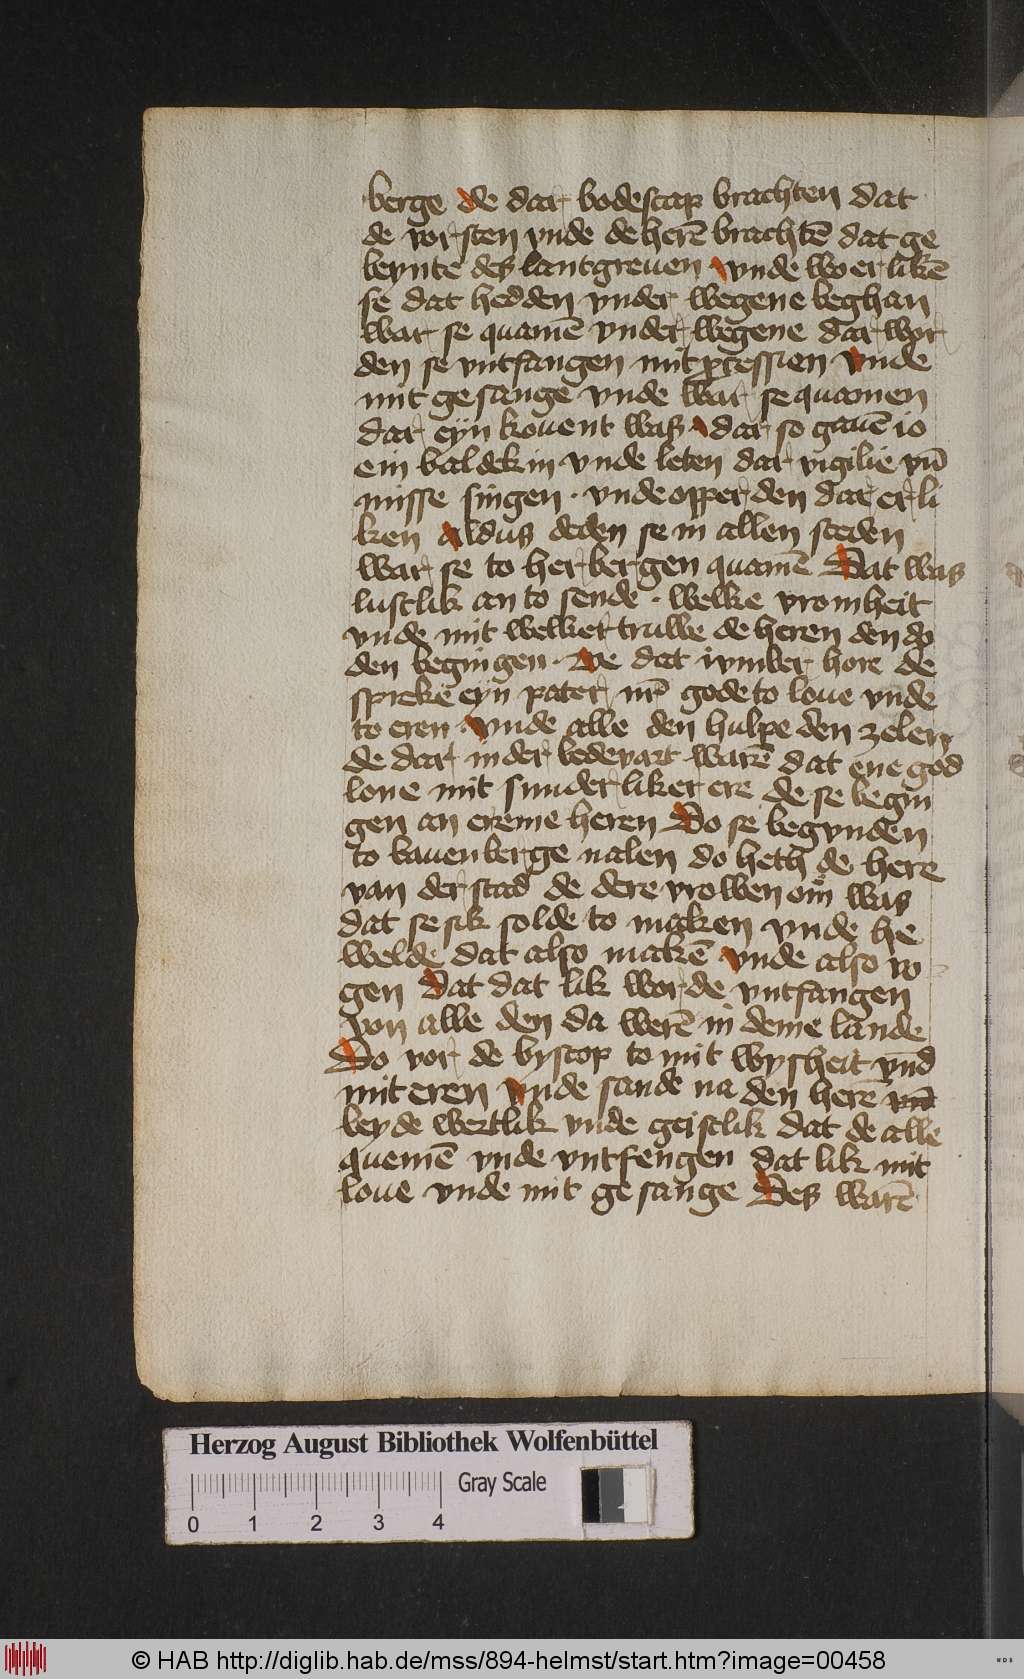 berge de dar bodescap brachten dat
de vorsten vnde de herē brachtē dat ge
beynte des lantgreuen vnde wo erlikē
se dat hedden vnder wegene beghan
war se quamē vnder wegene dar wor
den se vntfangen mit ꝓcessien vnde
mit gesange vnde war se quamen
dar eyn kouent was dar so gauē io
ein baldekin vnde leten dar vigilie vn̄
misse singen · vnde opper den dar erli
ken aldus deden se in allen steden
war se to herbergen quamē Dat was
lustlik an to sende · welke vromheit
vnde mit welker truwe de heren den do
den begingen · We dat ymber hore de
sprekē eyn pater nr̄ gode to loue vnde
to eren · vnde alle den hulpe den zelen
de dar in der bedevart warē dat ene god
lone mit sunderliker ere de se begin
gen an ereme heren Do se begynden
to bauenberge nalen do heth de here
van der stad de dere vrowen om was
dat se sik solde to maken vnde he
welde dat also makē vnde also vo
gen dat dat lik worde vntfangen
von alle den da werē in deme lande
Do vor de byscop to mit wysheit vnd
mit eren vnde sande na den herē vn̄
beyde wertlik vnde geistlik dat de alle
quemē vnde vntfengen dat lik mit
loue vnde mit gesange Des warē
Herzog August Bibliothek Wolfenbüttel
Gray Scale
0 1 2 3 4
© HAB http://diglib.hab.de/mss/894-helmst/start.htm?image=00458